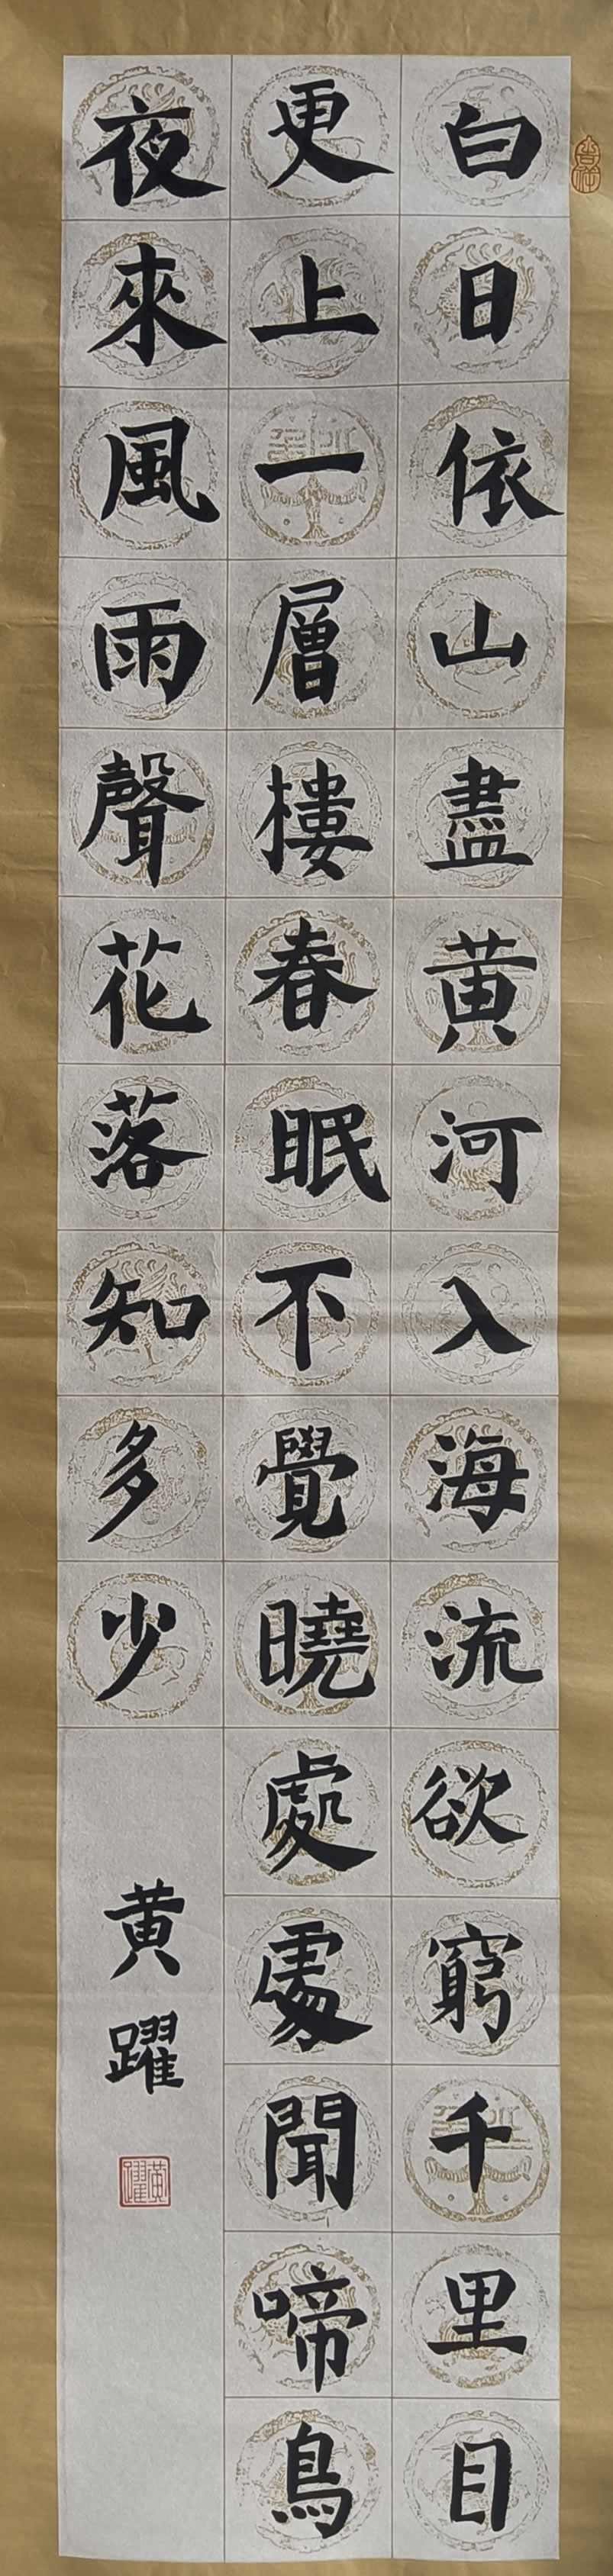 白日依山盡黄河入海流欲窮千里目
更上一層樓春眠不覺曉處處聞啼鳥
夜來風雨聲花落知多少
黄躍
黄躍